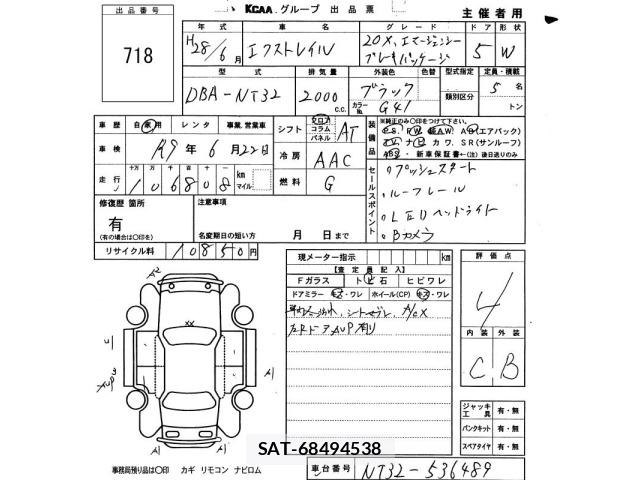 KCAA グループ 出品票
主催者用
出品番号
718
年式 車名 グレード ドア 形状
H28/6月 エクストレイル 20X,エマージェンシーブレーキパッケージ 5 W
型式 排気量 外装色 色替 型式指定 定員・積載
DBA-NT32 2000 c.c. ブラック カラーNo. G41 類別区分 5名 トン
車歴 自家用 レンタ 事業,営業車
シフト フロア コラム パネル AT
装備品 ※純正のみ〇印をつけて下さい。
P.S. P.W. A.W. AB(エアバック)
T.V. ナビ カワ. S.R(サンルーフ)
ABS ・新車保証書←(注)後日送りのみ
車検 R9年6月22日
冷房 AAC
走行 十万 万 千 百 十 km マイル
106808
燃料 G
セールスポイント
・プッシュスタート
・ルーフレール
・LEDヘッドライト
・Bカメラ
修復歴 箇所
有
(有の場合は〇印を)
注意事項
名変期日の短い方 月 日まで
リサイクル料 10850円
現メーター指示 km
【査定員記入】
Fガラス トビ石 ヒビワレ
ドアミラー キズ・ワレ ホイール(CP) キズ・ワレ
A/C X
評価点
4
内装 外装
C B
ジャッキ 工具 有・無
パンクキット 有・無
スペアタイヤ 有・無
A2
XX
U1
A1
A1
A1
SAT-68494538
事務局預り品は〇印 カギ リモコン ナビロム
車台番号 NT32-536489